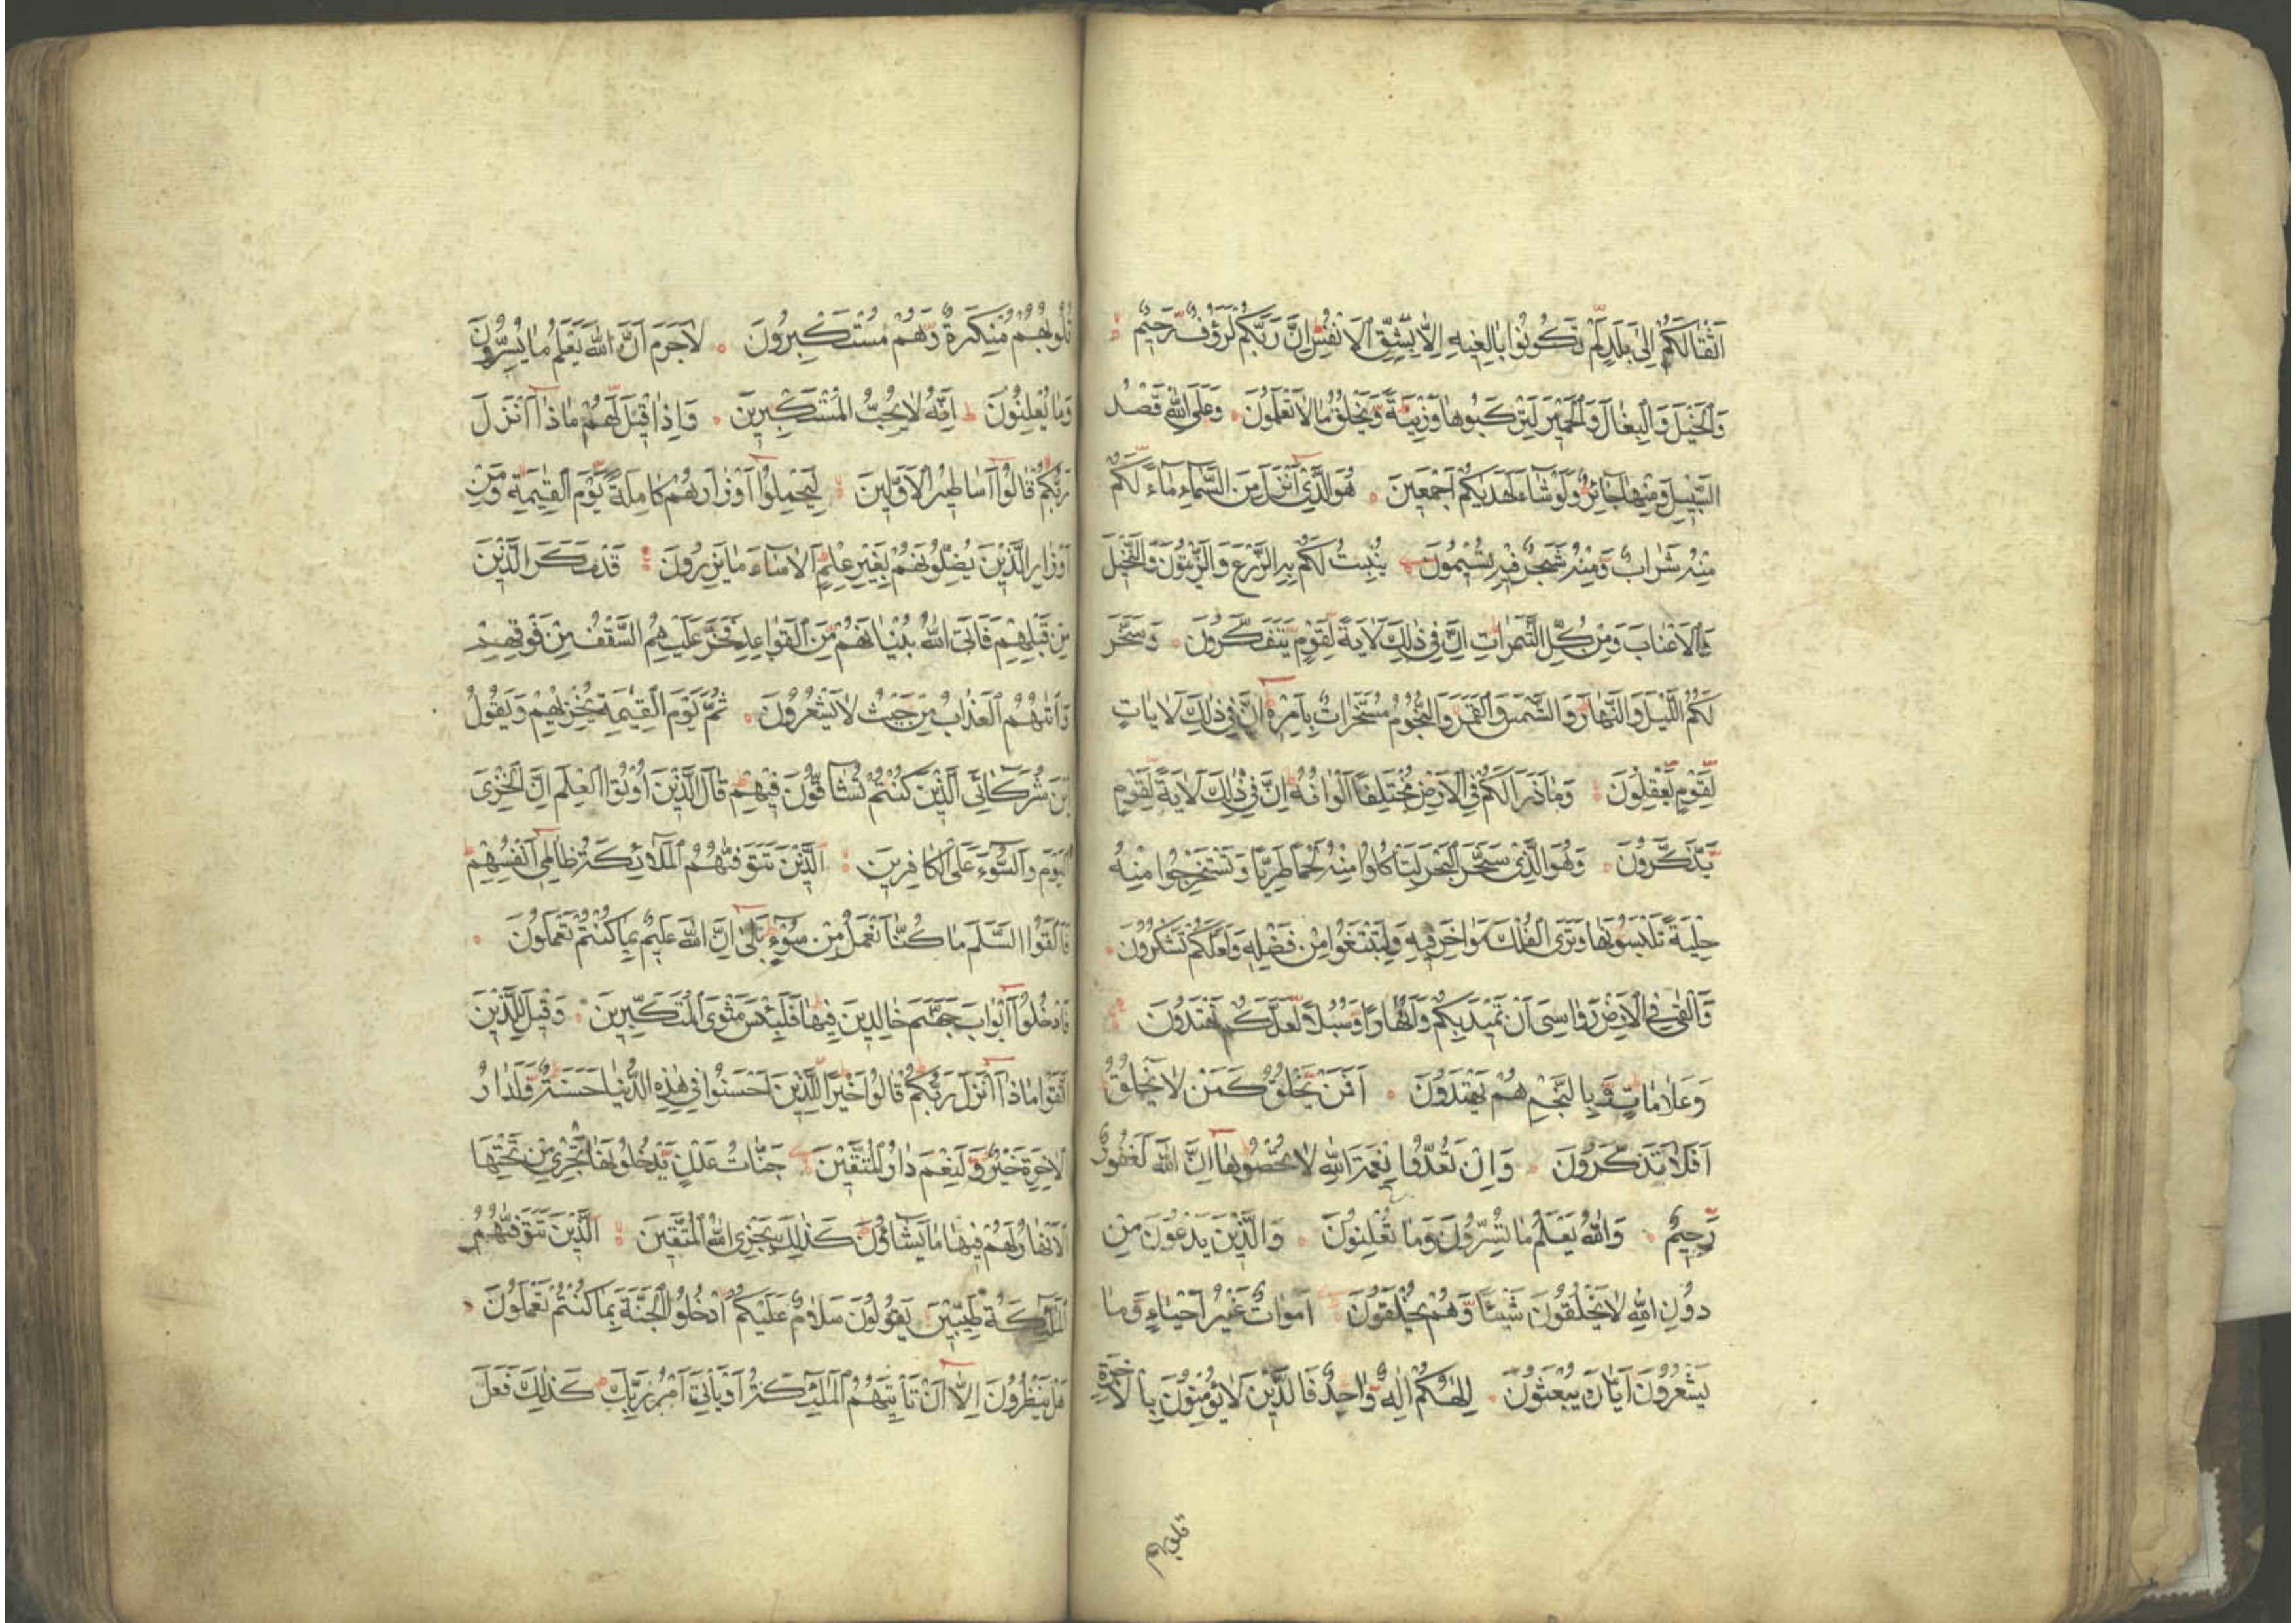 اَثْقَالَكُمْ اِلٰى بَلَدٍ لَمْ تَكُونُوا بَالِغِيهِ اِلَّا بِشِقِّ الْاَنْفُسِ اِنَّ رَبَّكُمْ لَرَؤُفٌ رَحِيمٌ
وَالْخَيْلَ وَالْبِغَالَ وَالْحَمِيرَ لِتَرْكَبُوهَا وَزِينَةً وَيَخْلُقُ مَا لَا تَعْلَمُونَ وَعَلَى اللّٰهِ قَصْدُ
السَّبِيلِ وَمِنْهَا جَائِرٌ وَلَوْ شَاءَ لَهَدٰيكُمْ اَجْمَعِينَ هُوَ الَّذِي اَنْزَلَ مِنَ السَّمَاءِ مَاءً لَكُمْ
مِنْهُ شَرَابٌ وَمِنْهُ شَجَرٌ فِيهِ تُسِيمُونَ يُنْبِتُ لَكُمْ بِهِ الزَّرْعَ وَالزَّيْتُونَ وَالنَّخِيلَ
وَالْاَعْنَابَ وَمِنْ كُلِّ الثَّمَرَاتِ اِنَّ فِي ذٰلِكَ لَاٰيَةً لِقَوْمٍ يَتَفَكَّرُونَ وَسَخَّرَ
لَكُمُ اللَّيْلَ وَالنَّهَارَ وَالشَّمْسَ وَالْقَمَرَ وَالنُّجُومُ مُسَخَّرَاتٌ بِاَمْرِهِ اِنَّ فِي ذٰلِكَ لَاٰيَاتٍ
لِقَوْمٍ يَعْقِلُونَ وَمَا ذَرَاَ لَكُمْ فِي الْاَرْضِ مُخْتَلِفًا اَلْوَانُهُ اِنَّ فِي ذٰلِكَ لَاٰيَةً لِقَوْمٍ
يَذَّكَّرُونَ وَهُوَ الَّذِي سَخَّرَ الْبَحْرَ لِتَاْكُلُوا مِنْهُ لَحْمًا طَرِيًّا وَتَسْتَخْرِجُوا مِنْهُ
حِلْيَةً تَلْبَسُونَهَا وَتَرَى الْفُلْكَ مَوَاخِرَ فِيهِ وَلِتَبْتَغُوا مِنْ فَضْلِهِ وَلَعَلَّكُمْ تَشْكُرُونَ
وَاَلْقٰى فِي الْاَرْضِ رَوَاسِيَ اَنْ تَمِيدَ بِكُمْ وَاَنْهَارًا وَسُبُلًا لَعَلَّكُمْ تَهْتَدُونَ
وَعَلَامَاتٍ وَبِالنَّجْمِ هُمْ يَهْتَدُونَ اَفَمَنْ يَخْلُقُ كَمَنْ لَا يَخْلُقُ
اَفَلَا تَذَكَّرُونَ وَاِنْ تَعُدُّوا نِعْمَةَ اللّٰهِ لَا تُحْصُوهَا اِنَّ اللّٰهَ لَغَفُورٌ
رَحِيمٌ وَاللّٰهُ يَعْلَمُ مَا تُسِرُّونَ وَمَا تُعْلِنُونَ وَالَّذِينَ يَدْعُونَ مِنْ
دُونِ اللّٰهِ لَا يَخْلُقُونَ شَيْئًا وَهُمْ يُخْلَقُونَ اَمْوَاتٌ غَيْرُ اَحْيَاءٍ وَمَا
يَشْعُرُونَ اَيَّانَ يُبْعَثُونَ اِلٰهُكُمْ اِلٰهٌ وَاحِدٌ فَالَّذِينَ لَا يُؤْمِنُونَ بِالْاٰخِرَةِ
قلوبهم
قُلُوبُهُمْ مُنْكِرَةٌ وَهُمْ مُسْتَكْبِرُونَ لَا جَرَمَ اَنَّ اللّٰهَ يَعْلَمُ مَا يُسِرُّونَ
وَمَا يُعْلِنُونَ اِنَّهُ لَا يُحِبُّ الْمُسْتَكْبِرِينَ وَاِذَا قِيلَ لَهُمْ مَاذَا اَنْزَلَ
رَبُّكُمْ قَالُوا اَسَاطِيرُ الْاَوَّلِينَ لِيَحْمِلُوا اَوْزَارَهُمْ كَامِلَةً يَوْمَ الْقِيٰمَةِ وَمِنْ
اَوْزَارِ الَّذِينَ يُضِلُّونَهُمْ بِغَيْرِ عِلْمٍ اَلَا سَاءَ مَا يَزِرُونَ قَدْ مَكَرَ الَّذِينَ
مِنْ قَبْلِهِمْ فَاَتَى اللّٰهُ بُنْيَانَهُمْ مِنَ الْقَوَاعِدِ فَخَرَّ عَلَيْهِمُ السَّقْفُ مِنْ فَوْقِهِمْ
وَاَتٰىهُمُ الْعَذَابُ مِنْ حَيْثُ لَا يَشْعُرُونَ ثُمَّ يَوْمَ الْقِيٰمَةِ يُخْزِيهِمْ وَيَقُولُ
اَيْنَ شُرَكَائِيَ الَّذِينَ كُنْتُمْ تُشَاقُّونَ فِيهِمْ قَالَ الَّذِينَ اُوتُوا الْعِلْمَ اِنَّ الْخِزْيَ
الْيَوْمَ وَالسُّوءَ عَلَى الْكَافِرِينَ الَّذِينَ تَتَوَفّٰىهُمُ الْمَلٰائِكَةُ ظَالِمِي اَنْفُسِهِمْ
فَاَلْقَوُا السَّلَمَ مَا كُنَّا نَعْمَلُ مِنْ سُوءٍ بَلٰى اِنَّ اللّٰهَ عَلِيمٌ بِمَا كُنْتُمْ تَعْمَلُونَ
فَادْخُلُوا اَبْوَابَ جَهَنَّمَ خَالِدِينَ فِيهَا فَلَبِئْسَ مَثْوَى الْمُتَكَبِّرِينَ وَقِيلَ لِلَّذِينَ
اتَّقَوْا مَاذَا اَنْزَلَ رَبُّكُمْ قَالُوا خَيْرًا لِلَّذِينَ اَحْسَنُوا فِي هٰذِهِ الدُّنْيَا حَسَنَةٌ وَلَدَارُ
الْاٰخِرَةِ خَيْرٌ وَلَنِعْمَ دَارُ الْمُتَّقِينَ جَنَّاتُ عَدْنٍ يَدْخُلُونَهَا تَجْرِي مِنْ تَحْتِهَا
الْاَنْهَارُ لَهُمْ فِيهَا مَا يَشَاؤُنَ كَذٰلِكَ يَجْزِي اللّٰهُ الْمُتَّقِينَ الَّذِينَ تَتَوَفّٰىهُمُ
الْمَلٰئِكَةُ طَيِّبِينَ يَقُولُونَ سَلَامٌ عَلَيْكُمُ ادْخُلُوا الْجَنَّةَ بِمَا كُنْتُمْ تَعْمَلُونَ
هَلْ يَنْظُرُونَ اِلَّا اَنْ تَاْتِيَهُمُ الْمَلٰئِكَةُ اَوْ يَاْتِيَ اَمْرُ رَبِّكَ كَذٰلِكَ فَعَلَ